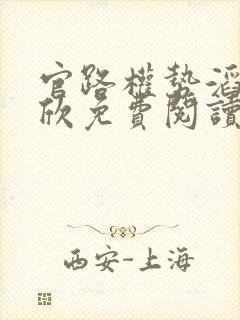 官路權勢滔
欣免費閱讀
西安-上海